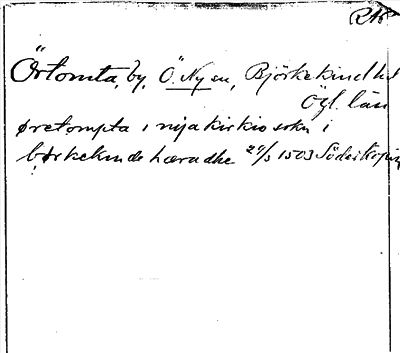 RAP
Örtomta, by, Ö. Ny sn, Björkekind hd
Ögl. län
øretompta i nyia kirkio sokn i
børkekinde hæradhe 29/3 1503 Söderköping